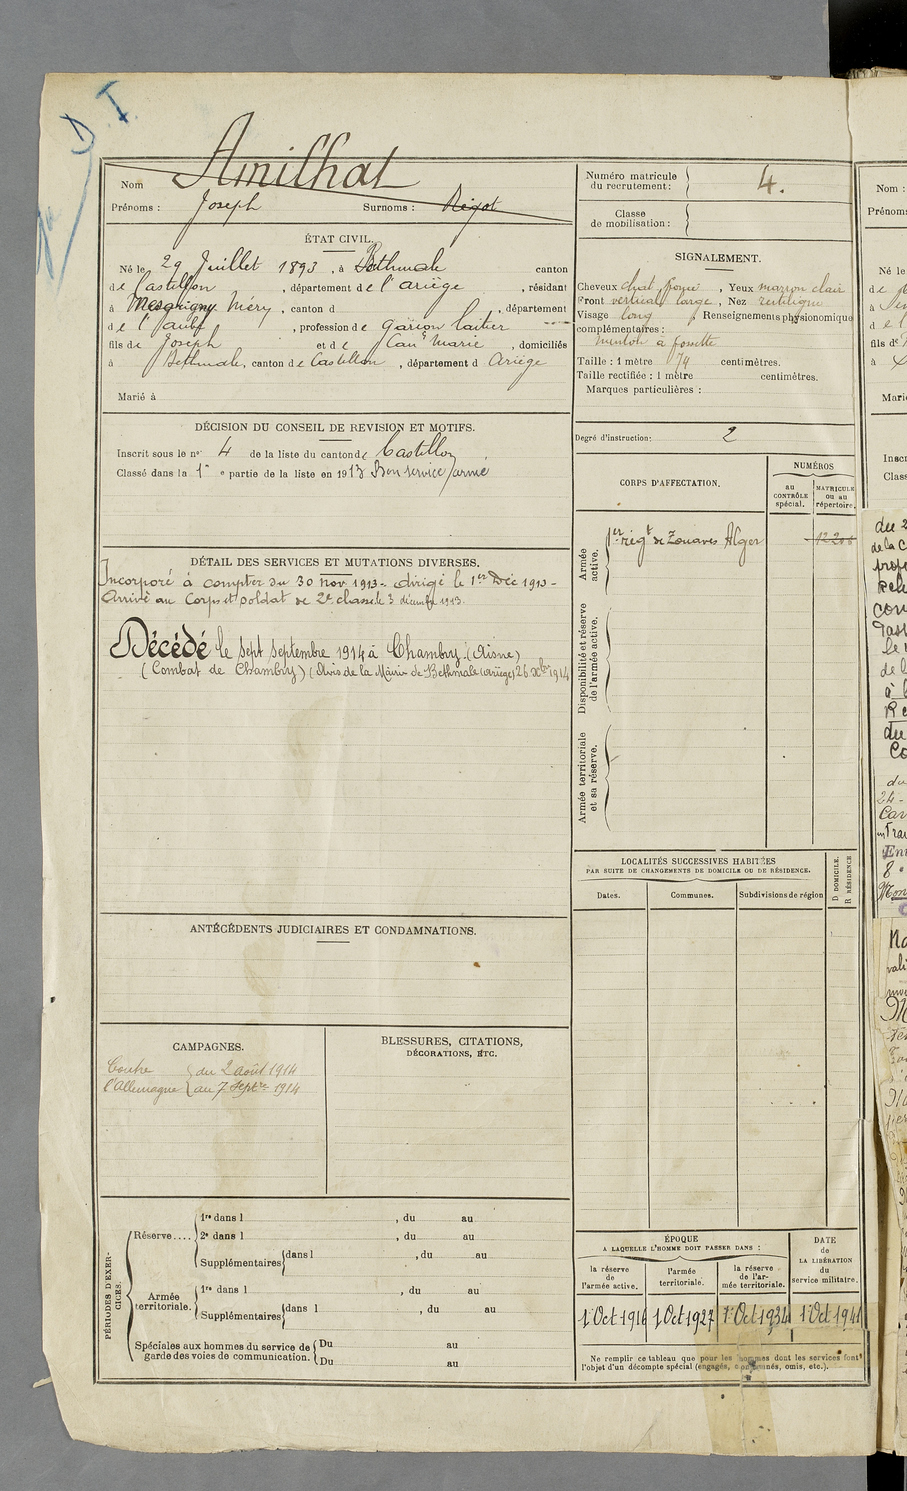 D. I.
Nom Amilhat
Prénoms : Joseph Surnoms : Rigot
ÉTAT CIVIL.
Né le 29 Juillet 1893, à Bethmale canton
de Castillon, département de l'ariège, résidant
à Mesgrigny Méry, canton d , département
de l'aube, profession de garçon laitier
fils de Joseph et de Cau Marie, domiciliés
à Bethmale, canton de Castillon, département d Ariège
Marié à
DÉCISION DU CONSEIL DE REVISION ET MOTIFS.
Inscrit sous le n° 4 de la liste du canton de Castillon
Classé dans la 1e partie de la liste en 1913 Bon service armé
DÉTAIL DES SERVICES ET MUTATIONS DIVERSES.
Incorporé à compter du 30 Nov 1913 - dirigé le 1er Déc 1913 -
Arrivé au Corps et soldat de 2e classe le 3 décembre 1913.
Décédé le sept septembre 1914 à Chambry (Aisne)
(Combat de Chambry) (Avis de la Mairie de Bethmale (ariège) 26 Xbre 1914
ANTÉCÉDENTS JUDICIAIRES ET CONDAMNATIONS.
CAMPAGNES.
Contre { du 2 août 1914
l'Allemagne { au 7 Septre 1914
BLESSURES, CITATIONS,
DÉCORATIONS, ETC.
PÉRIODES D'EXERCICES.
Réserve....
1re dans l , du au
2e dans l , du au
Supplémentaires {dans l , du au
Armée territoriale.
1re dans l , du au
Supplémentaires {dans l , du au
Spéciales aux hommes du service de {Du au
garde des voies de communication. {Du au
Numéro matricule
du recrutement : 4.
Classe
de mobilisation :
SIGNALEMENT.
Cheveux chat foncé, Yeux marron clair
Front vertical large, Nez rectiligne
Visage long Renseignements physionomiques
complémentaires :
menton à fossette
Taille : 1 mètre 74 centimètres.
Taille rectifiée : 1 mètre centimètres.
Marques particulières :
Degré d'instruction : 2
CORPS D'AFFECTATION.
NUMÉROS
au
CONTRÔLE
spécial.
MATRICULE
ou au
répertoire.
Armée
active.
1er régt de Zouaves Alger
Disponibilité et réserve
de l'armée active.
Armée territoriale
et sa réserve.
LOCALITÉS SUCCESSIVES HABITÉES
PAR SUITE DE CHANGEMENTS DE DOMICILE OU DE RÉSIDENCE.
Dates.
Communes.
Subdivisions de région
D DOMICILE.
R RÉSIDENCE
ÉPOQUE
A LAQUELLE L'HOMME DOIT PASSER DANS :
la réserve
de
l'armée active.
l'armée
territoriale.
la réserve
de l'ar-
mée territoriale.
DATE
de
LA LIBÉRATION
du
service militaire.
1 Oct 1916
1 Oct 1927
1 Oct 1934
1 Oct 1941
Ne remplir ce tableau que pour les hommes dont les services font
l'objet d'un décompte spécial (engagés, condamnés, omis, etc.).
Nom :
Prénoms
Né le
fils de
Marié
Inscr
Class